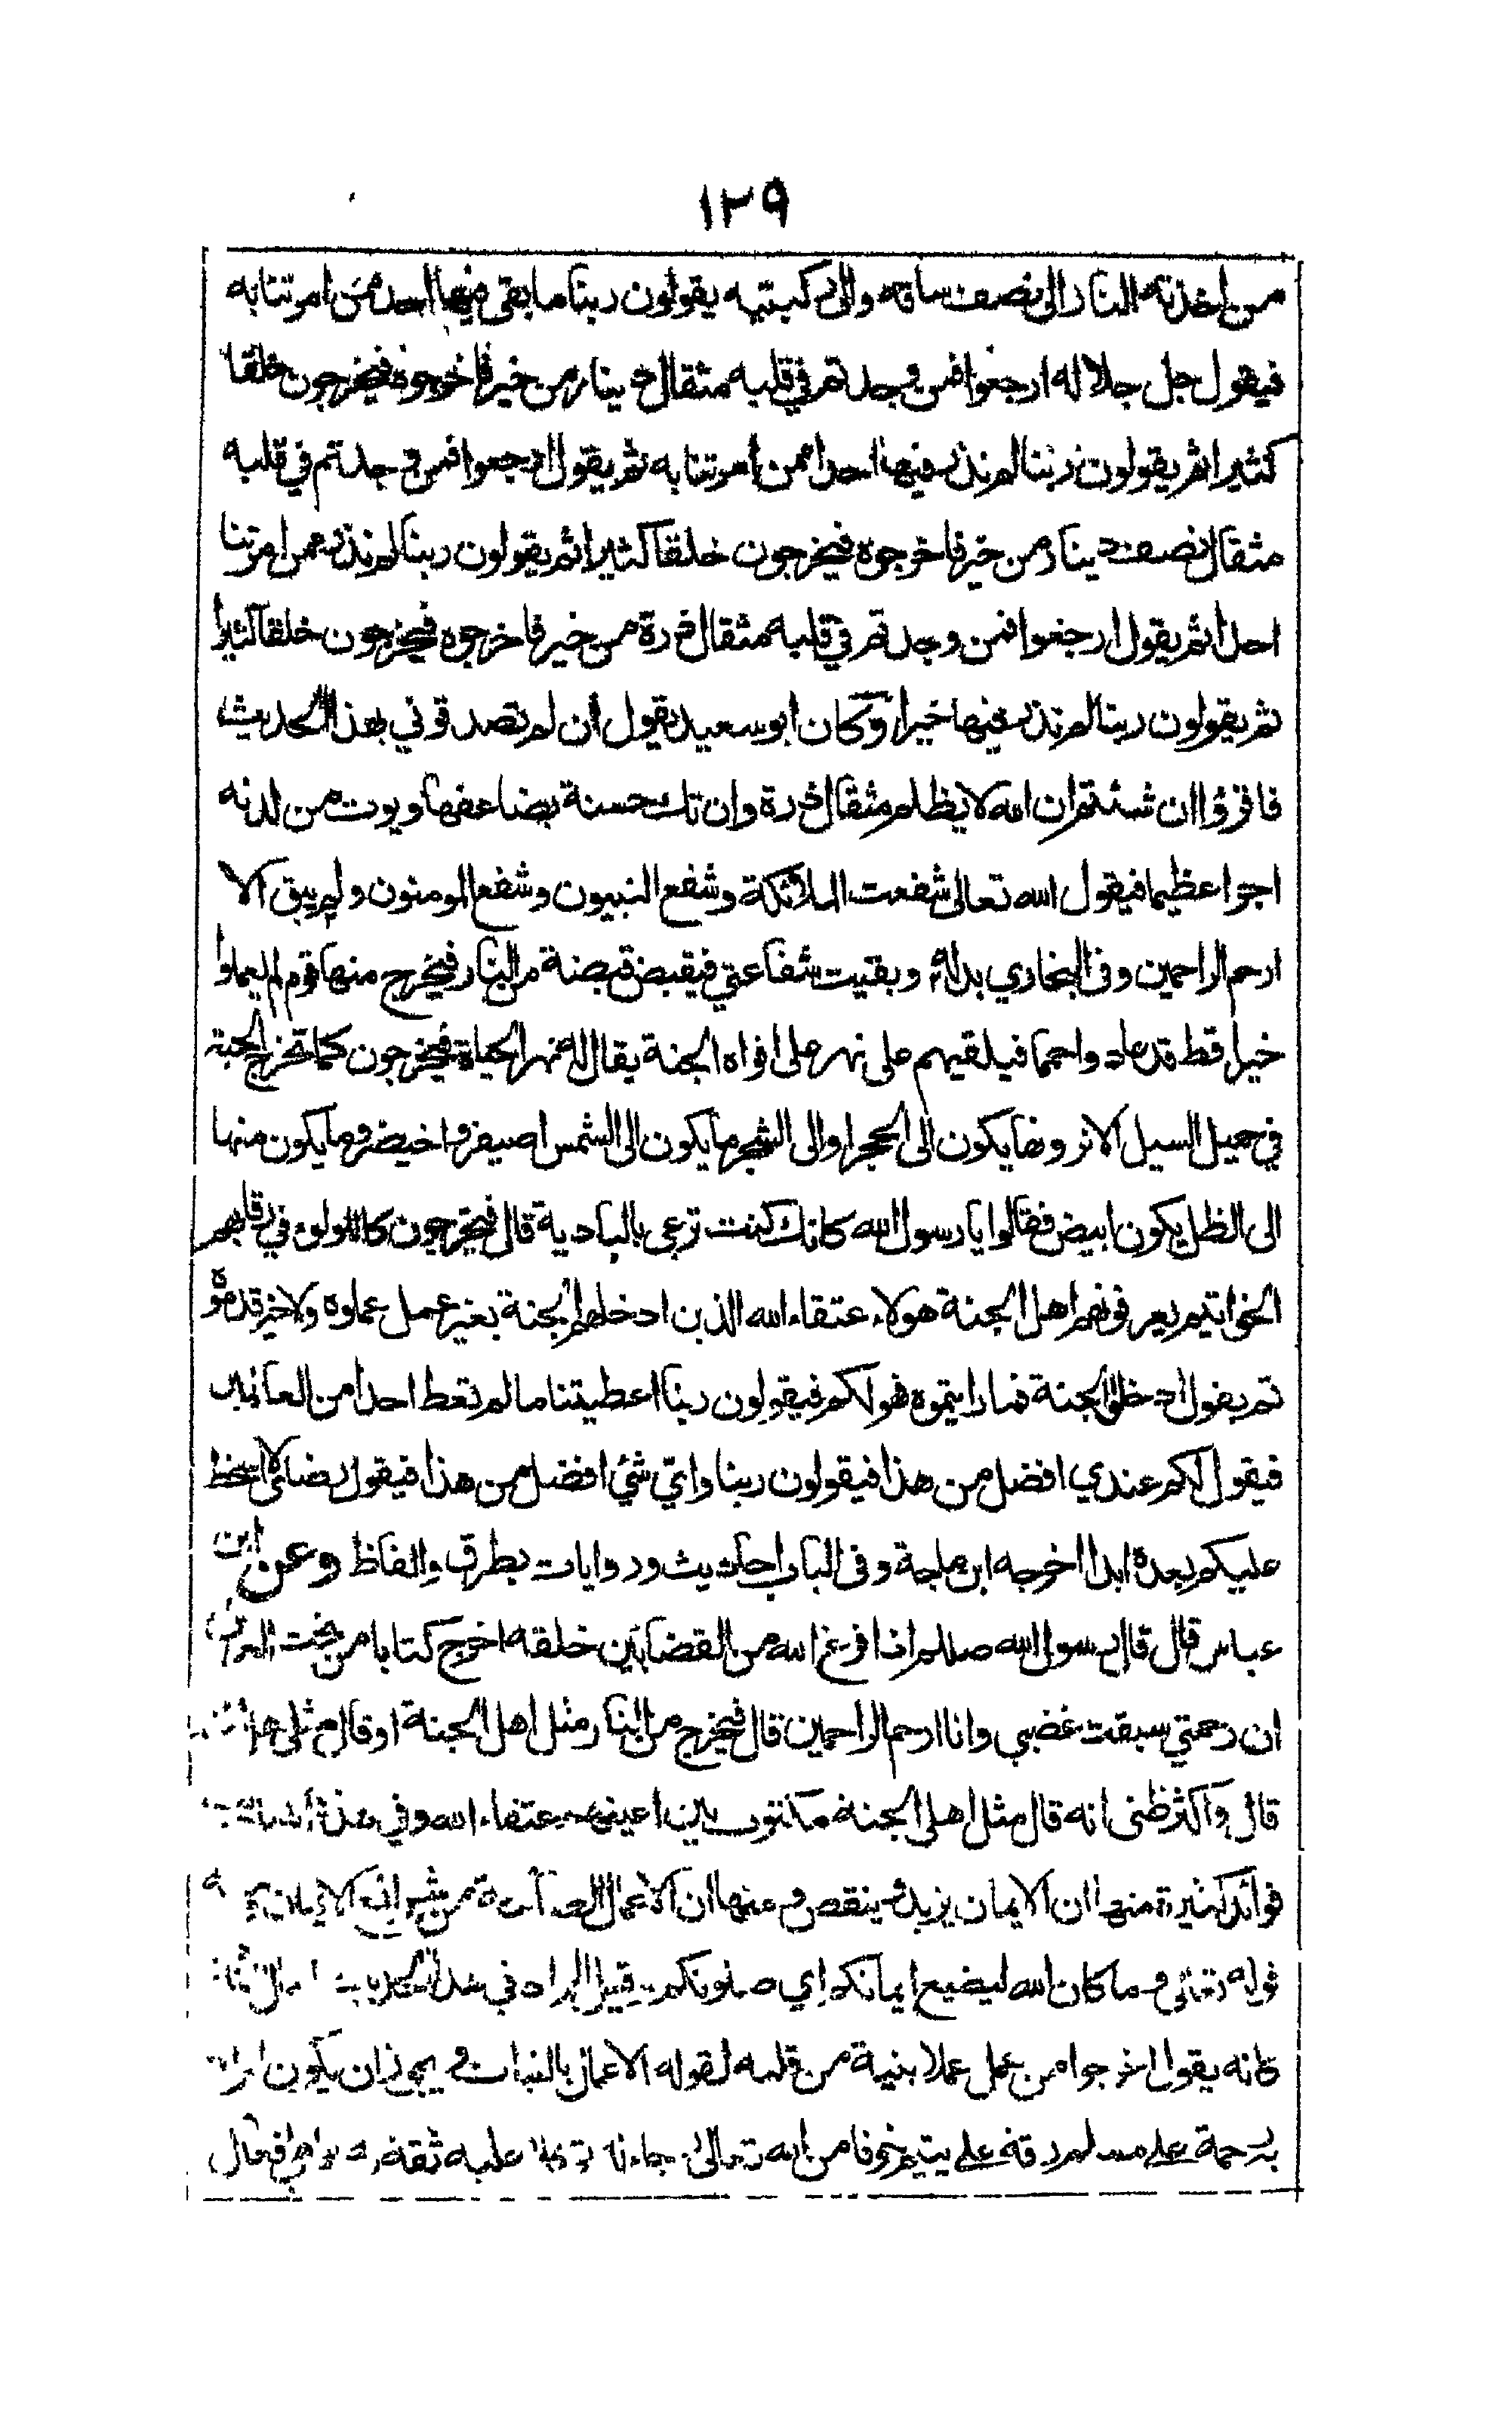 ١٢٩
من اخذته النار الى نصف ساقه والى ركبتيه يقولون ربنا ما بقى فيها احد ممن امرتنا به
فيقول جل جلاله ارجعوا فمن وجدتم في قلبه مثقال دينار من خير فاخرجوه فيخرجون خلقا
كثيرا ثم يقولون ربنا لم نذر فيها احدا ممن أمرتنا به ثم يقول ارجعوا فمن وجدتم في قلبه
مثقال نصف دينار من خير فاخرجوه فيخرجون خلقا كثيرا ثم يقولون ربنا لم نذر ممن امرتنا
احدا ثم يقول ارجعوا فمن وجدتم في قلبه مثقال ذرة من خير فاخرجوه فيخرجون خلقا كثيرا
ثم يقولون ربنا لم نذر فيها خيرا وكان ابو سعيد يقول ان لم تصدقوني بهذا الحديث
فاقرؤا ان شئتم ان الله لا يظلم مثقال ذرة وان تك حسنة يضاعفها ويوت من لدنه
اجرا عظيما فيقول الله تعالى شفعت الملائكة وشفع النبيون وشفع المومنون ولم يبق الا
ارحم الراحمين وفى البخاري بدله وبقيت شفاعتي فيقبض قبضة من النار فيخرج منها قوم لم يعملوا
خيرا قط قد عادوا حمما فيلقيهم على نهر على افواه الجنة يقال له نهر الحياة فيخرجون كما تخرج الحبة
في حميل السيل الا تروها يكون الى الحجر او الى الشجر ما يكون الى الشمس اصيفر واخيضر وما يكون منها
الى الظل يكون ابيض فقالوا يا رسول الله كانك كنت ترعى بالبادية قال فيخرجون كاللولؤ في رقابهم
الخواتيم يعرفونهم اهل الجنة هولاء عتقاء الله الذين ادخلهم الجنة بغير عمل عملوه ولا خير قدموه
ثم يقول ادخلوا الجنة فما رايتموه فهو لكم فيقولون ربنا اعطيتنا ما لم تعط احدا من العالمين
فيقول لكم عندي افضل من هذا فيقولون ربنا واي شئ افضل من هذا فيقول رضائي لا اسخط
عليكم بعده ابدا اخرجه ابن ماجة وفى الباب احاديث وروايات بطرق والفاظ وعن ابن
عباس قال قال رسول الله صللم اذا فرغ الله من القضا بين خلقه اخرج كتابا من تحت العرش
ان رحمتي سبقت غضبي وانا ارحم الراحمين قال فيخرج من النار مثل اهل الجنة او قال مثلى اهل
قال واكثر ظنى انه قال مثل اهل الجنة مكتوب بين اعينهم عتقاء الله وفي هذه
فوائد كثيرة منها ان الايمان يزيد وينقص ومنها ان الاعمال الصالحة من شرائع الايمان
قوله تعالى وما كان الله ليضيع ايمانكم اي صلوتكم وقيل المراد في هذا الحديث
كانه يقول اخرجوا من عمل عملا بنية من قلبه لقوله الاعمال بالنيات ويجوز ان يكون
رحمة على مسلم رقة على يتيم خوفا من الله تعالى رجاء له توكلا عليه ثقة به